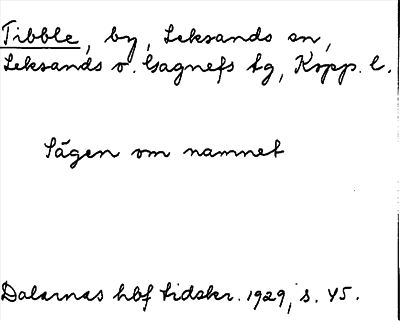 Tibble, by, Leksands sn,
Leksands o. Gagnefs tg, Kopp. l.
Sägen om namnet
Dalarnas hbf tidskr. 1929, s. 45.